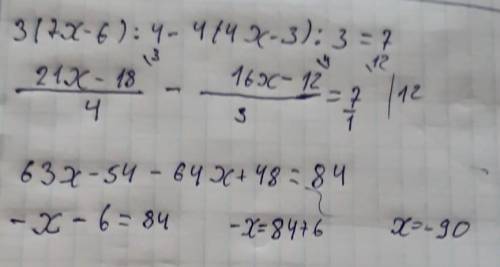 3(7x-6):4-4(4x-3):3=7
(21x-18)/4 - (16x-12)/3 = 7/1 |12
63x-54-64x+48=84
-x-6=84 -x=84+6 x=-90